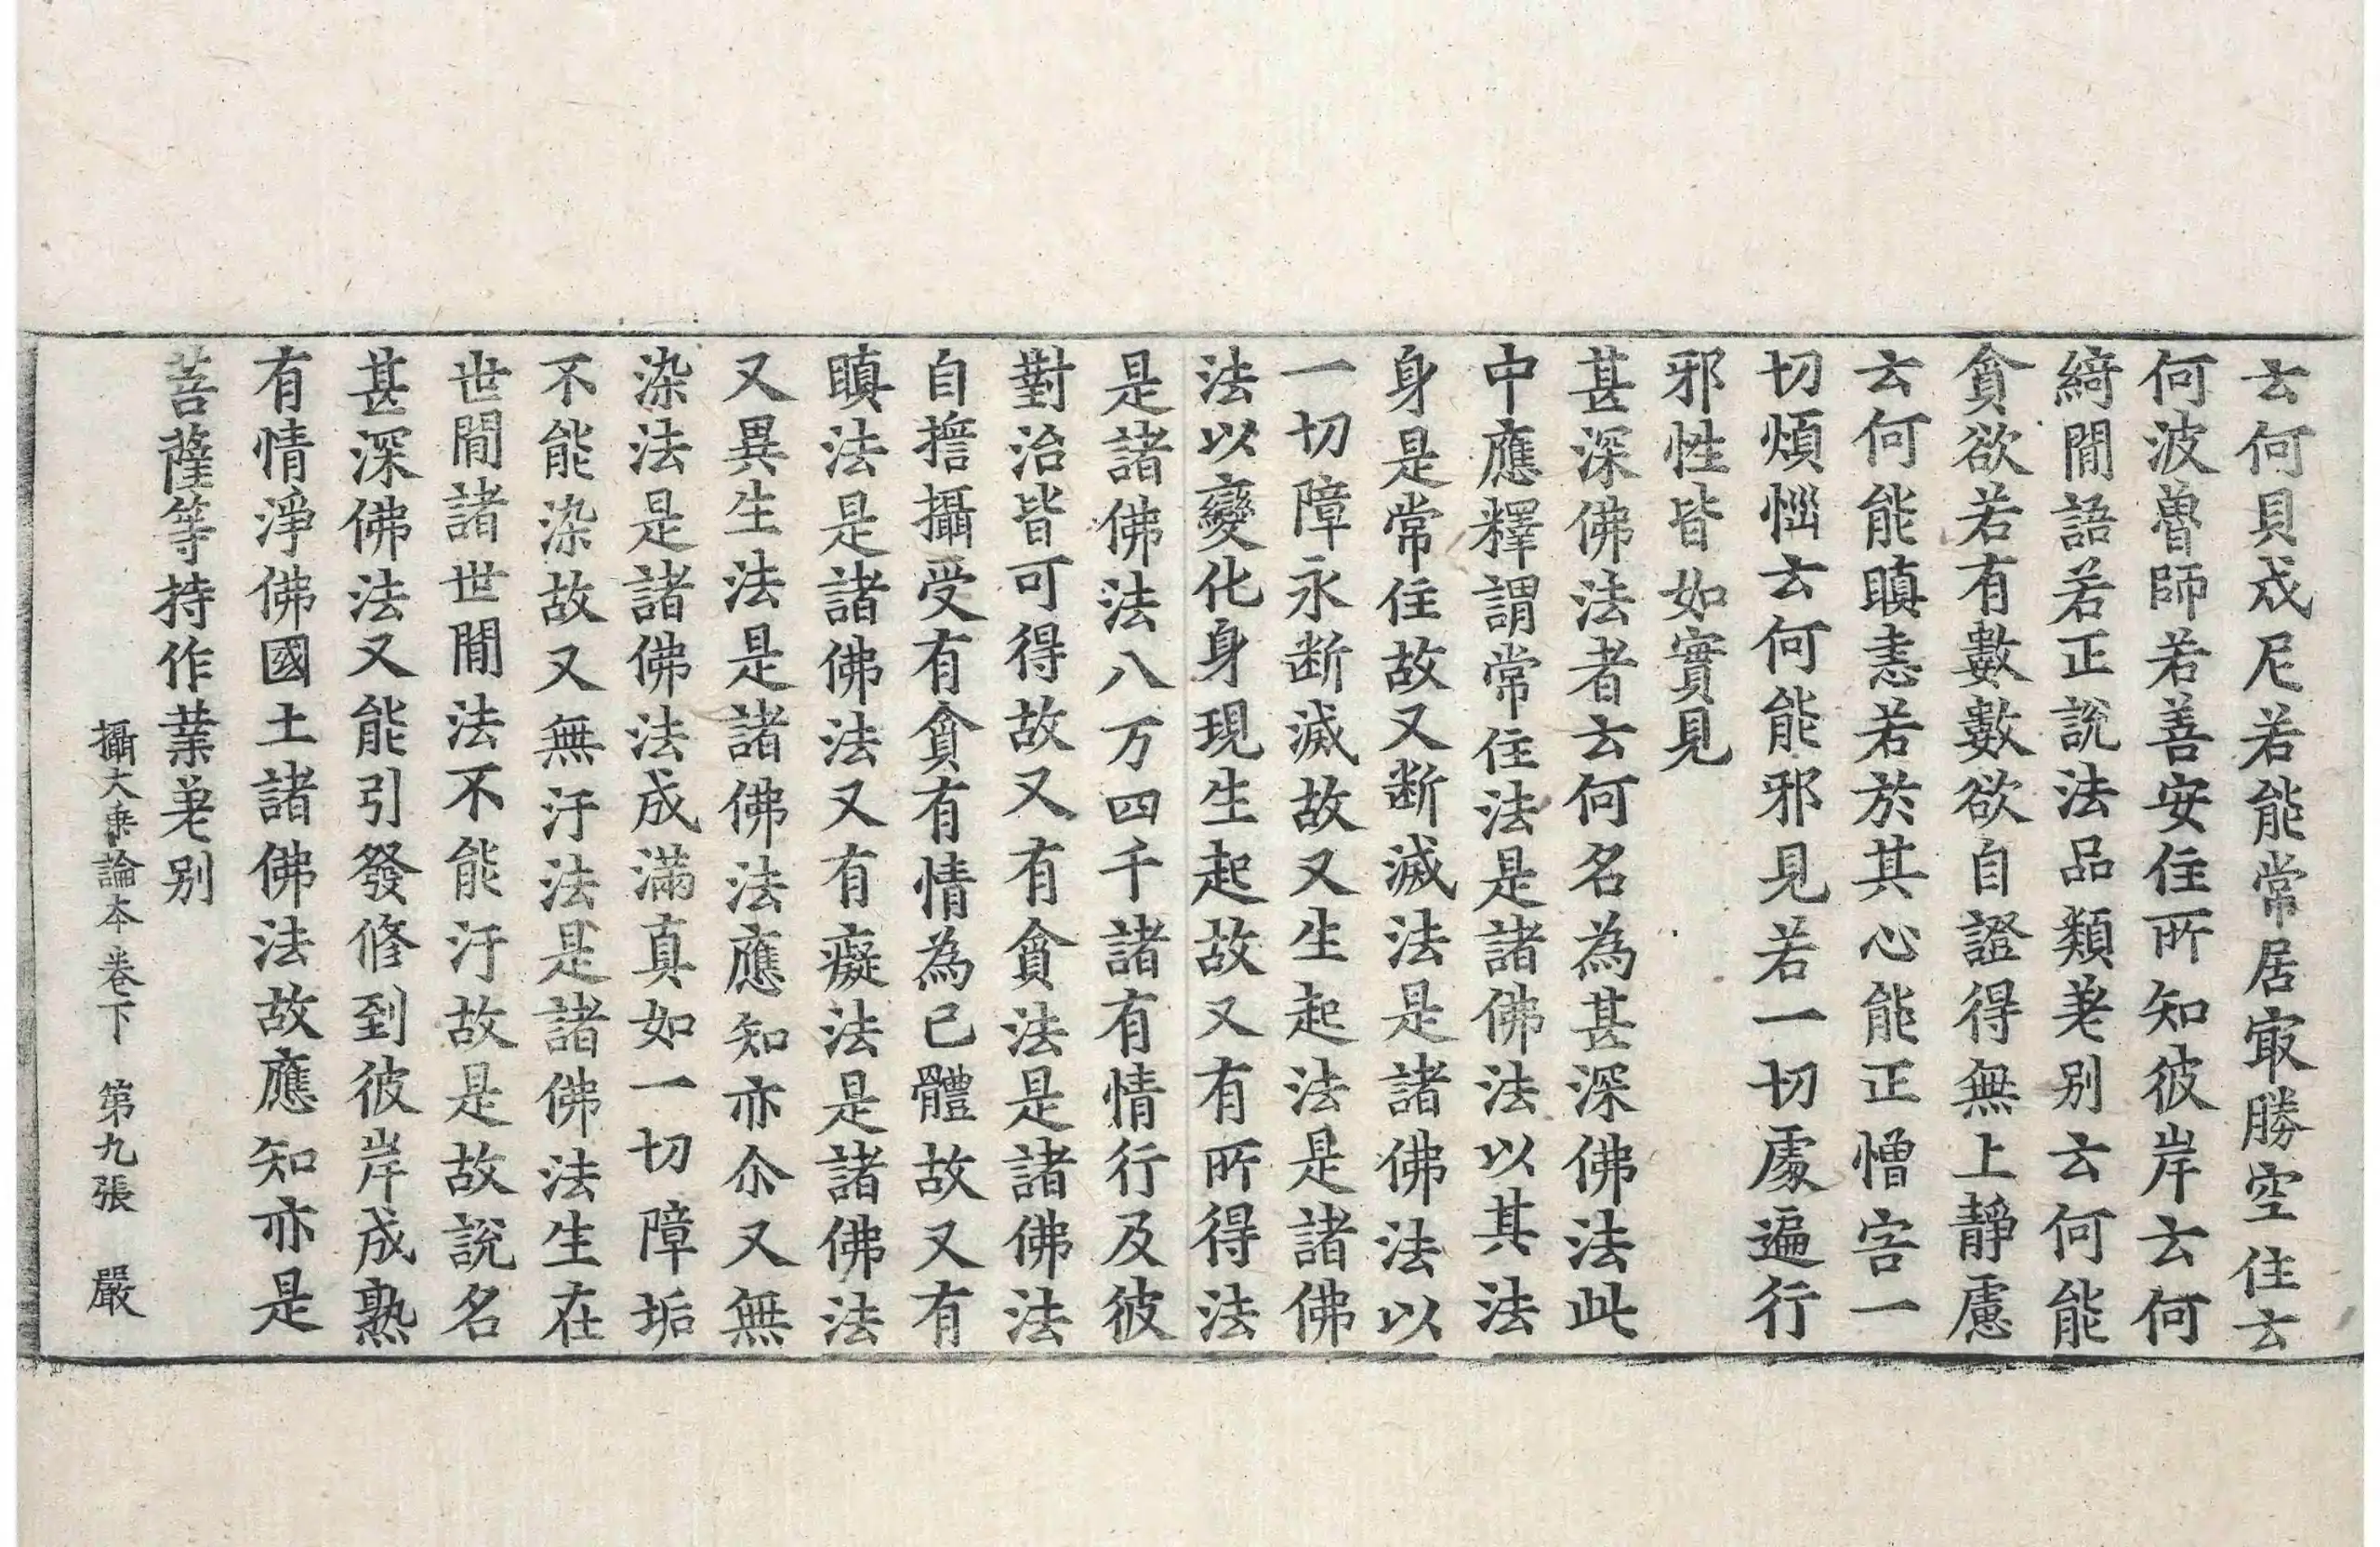 云何貝戍尼若能常居冣勝空住云
何波魯師若善安住所知彼岸云何
綺閒語若正說法品類差别云何能
貪欲若有數數欲自證得無上靜慮
云何能瞋恚若於其心能正憎害一
切煩惱云何能邪見若一切處遍行
邪性皆如實見
甚深佛法者云何名為甚深佛法此
中應釋謂常住法是諸佛法以其法
身是常住故又断滅法是諸佛法以
一切障永断滅故又生起法是諸佛
法以變化身現生起故又有所得法
是諸佛法八万四千諸有情行及彼
對治皆可得故又有貪法是諸佛法
自擔攝受有貪有情為已體故又有
瞋法是諸佛法又有癡法是諸佛法
又異生法是諸佛法應知亦尒又無
染法是諸佛法成滿真如一切障垢
不能染故又無汙法是諸佛法生在
世閒諸世閒法不能汙故是故說名
甚深佛法又能引發修到彼岸成熟
有情淨佛國土諸佛法故應知亦是
菩薩等持作業差别
攝大乗論本卷下 第九張 嚴